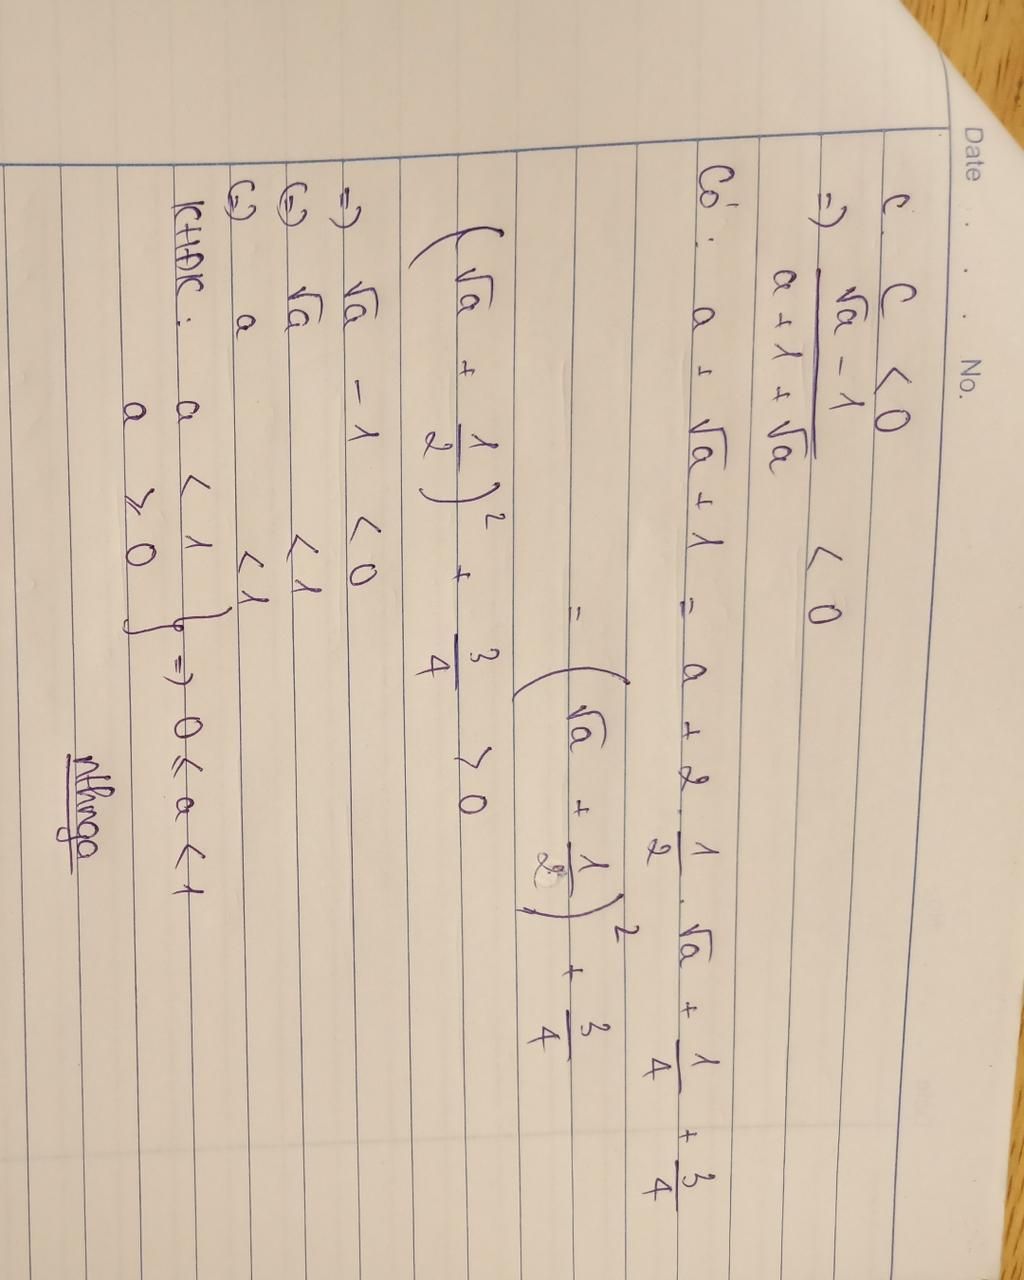 Date . . . No.
c. C < 0
=) √a - 1 / a + 1 + √a < 0
Có : a + √a + 1 = a + 2 . 1/2 . √a + 1/4 + 3/4
= (√a + 1/2)² + 3/4
(√a + 1/2)² + 3/4 > 0
=) √a - 1 < 0
(=) √a < 1
(=) a < 1
KHĐK : a < 1
a ≥ 0 } =) 0 ≤ a < 1
nthnga